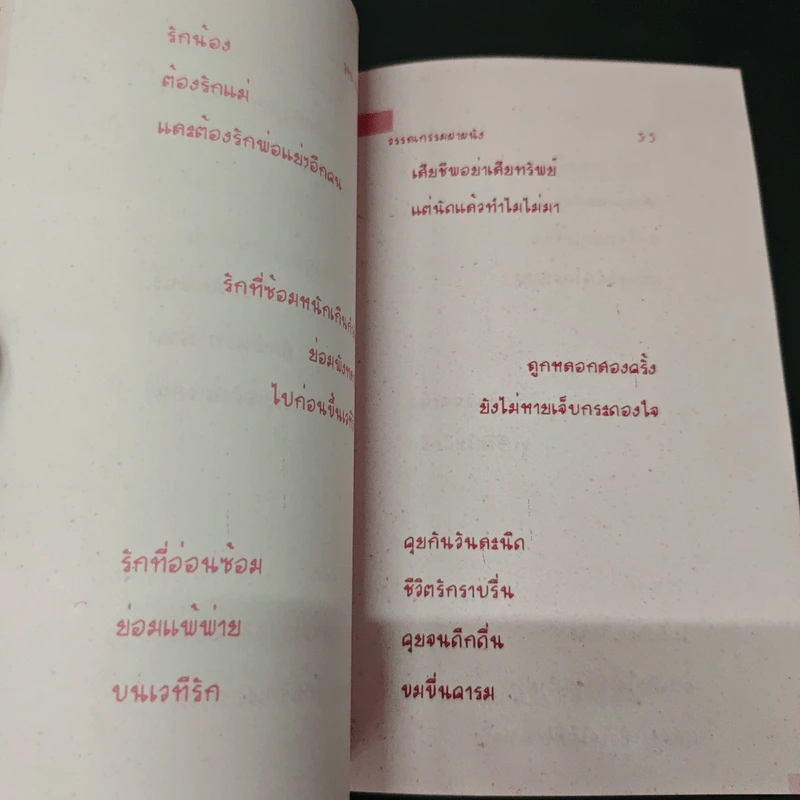 รักน้อง
ต้องรักแม่
และต้องรักพ่อแย่งอีกคน
รักที่ซ้อมหนักเกิน
ย่อมพัง
ไปก่อนขึ้นเวที
รักที่อ่อนซ้อม
ย่อมแพ้พ่าย
บนเวทีรัก
วรรคเกรรมยายนัง
55
เสียชีพอย่าเสียทรัพย์
แต่นัดแล้วทำไมไม่มา
ถูกหลอกสองครั้ง
ยังไม่หายเจ็บกระดองใจ
คุยกันวันละนิด
ชีวิตรักราบรื่น
คุยจนดึกดื่น
ขมขื่นคารม